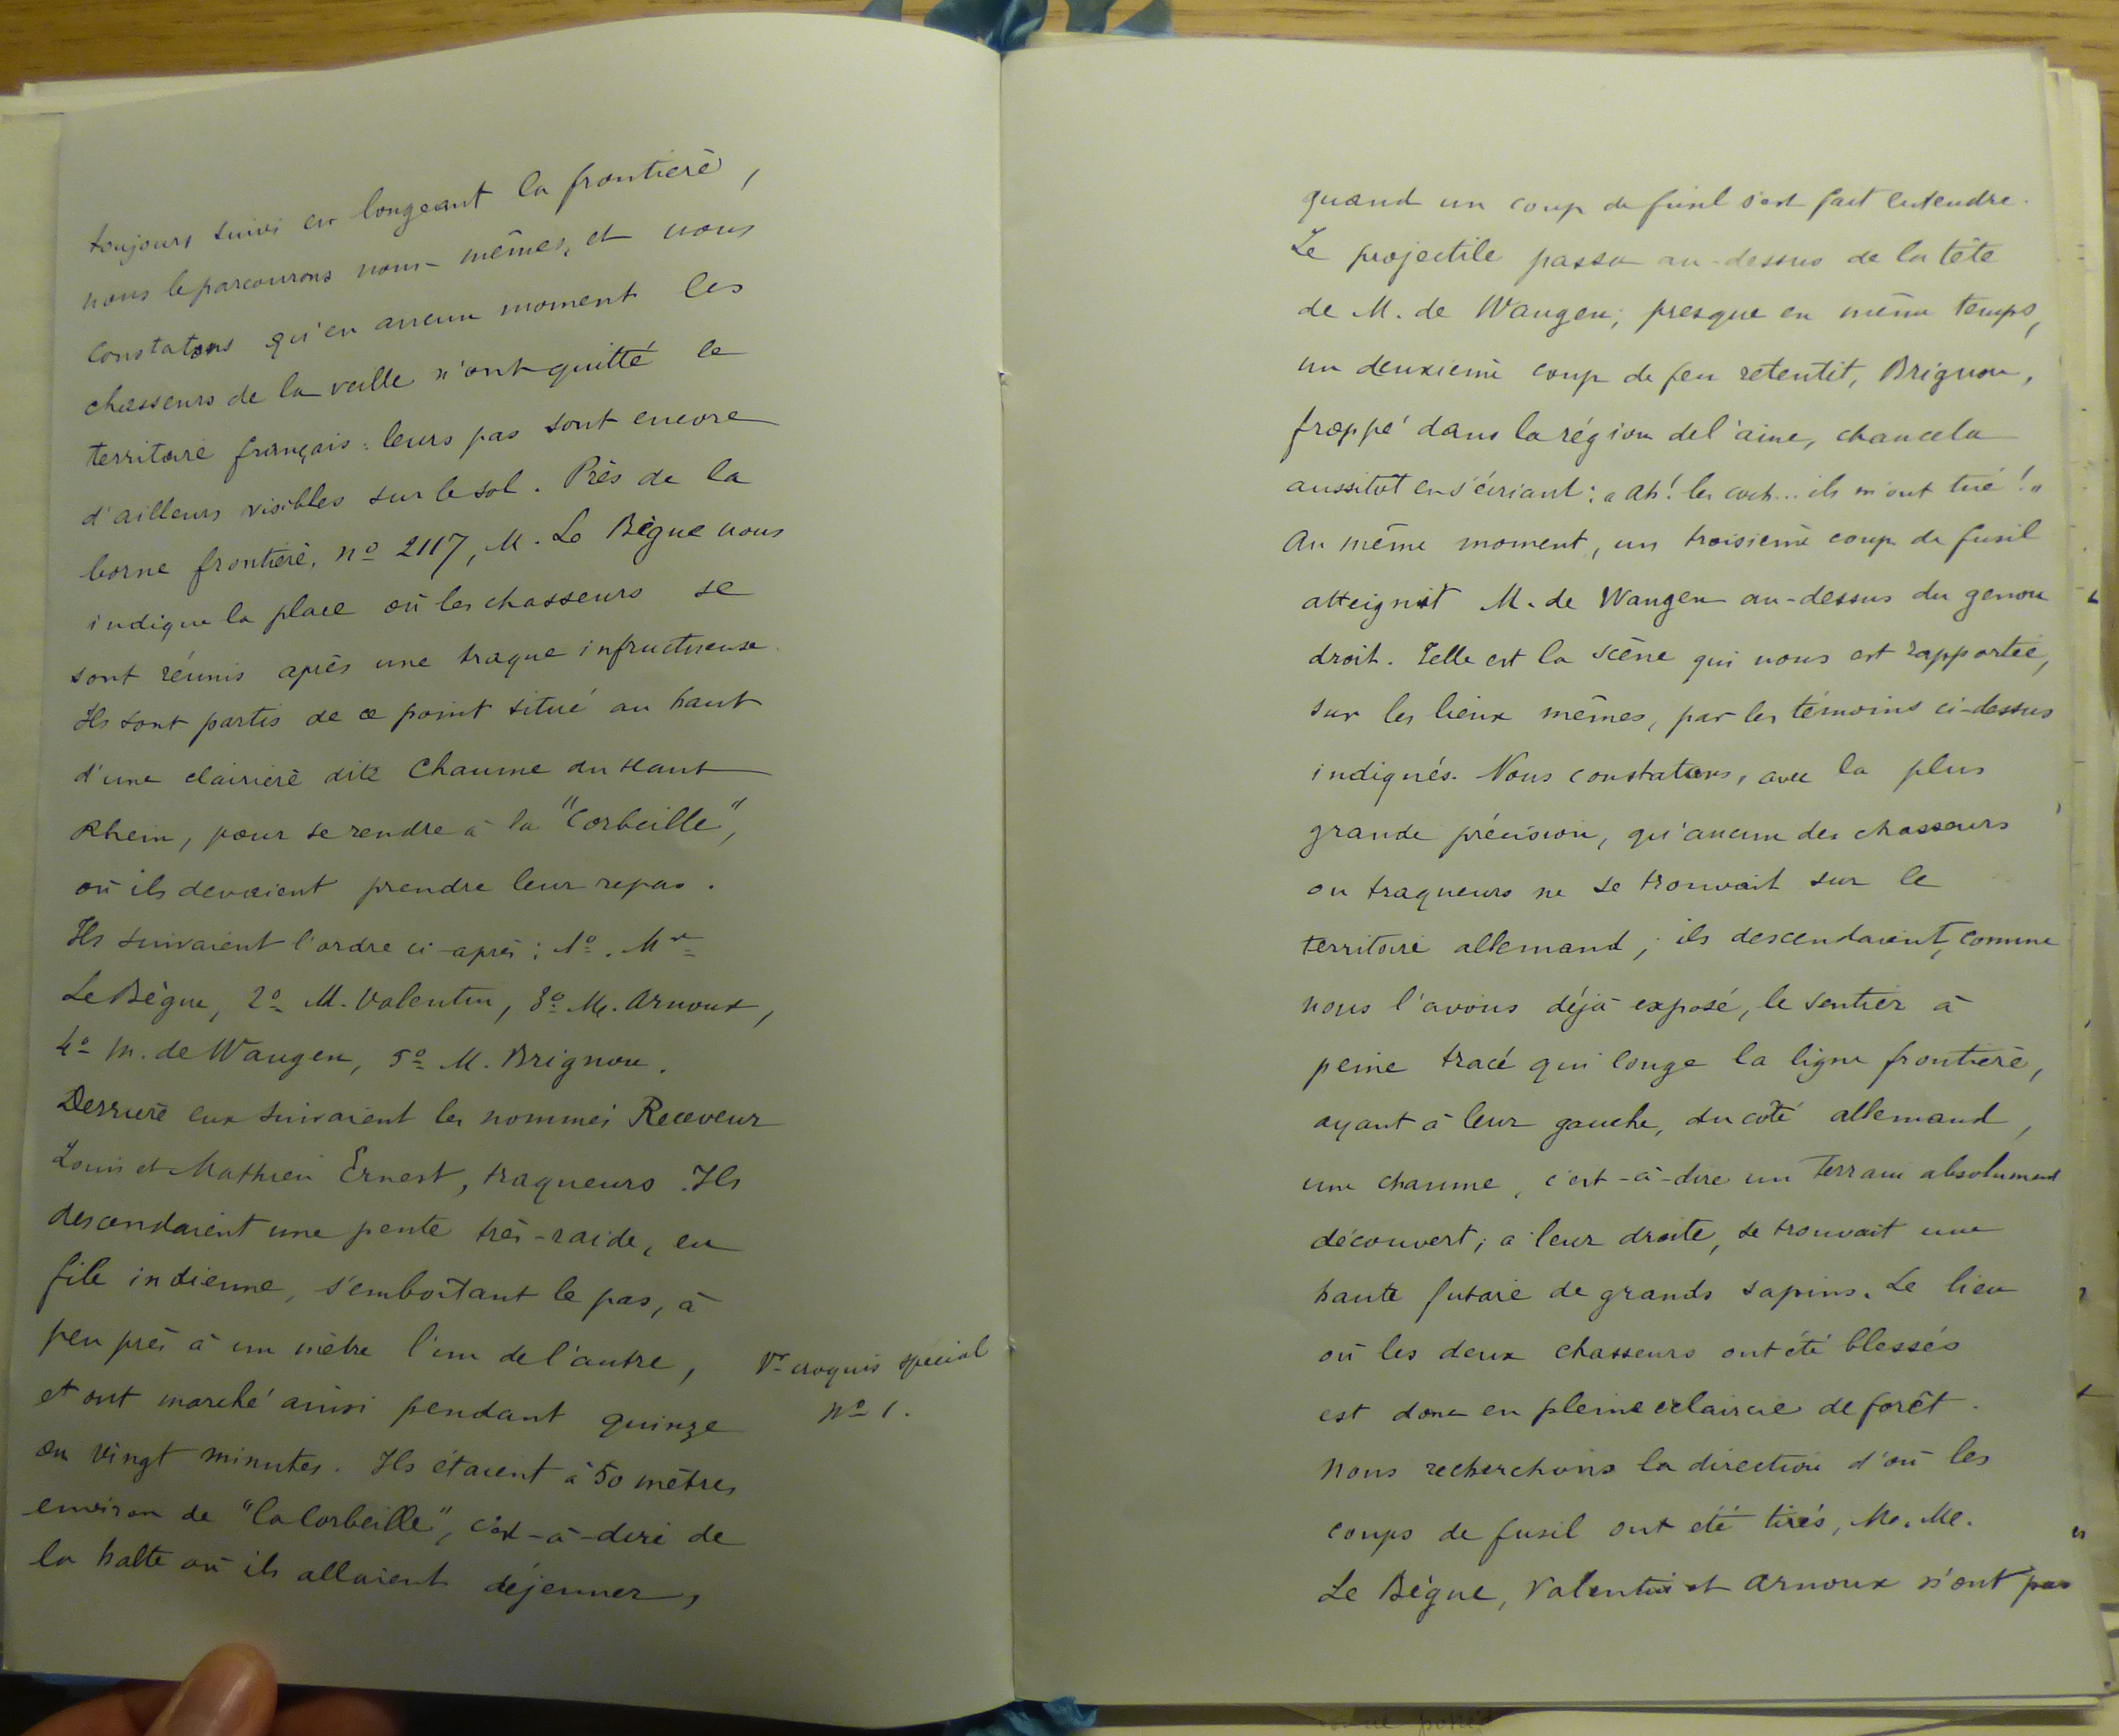 toujours suivi en longeant la frontière,
nous le parcourons nous-mêmes, et nous
constatons qu'en aucun moment les
chasseurs de la veille n'ont quitté le
territoire français : leurs pas sont encore
d'ailleurs visibles sur le sol. Près de la
borne frontière, nº 2117, M. Le Bègue nous
indique la place où les chasseurs se
sont réunis après une traque infructueuse.
Ils sont partis de ce point situé au haut
d'une clairière dite Chaume du Haut
Rhein, pour se rendre à la "Corbeille",
où ils devaient prendre leur repas.
Ils suivaient l'ordre ci-après : 1º. Mr
Le Bègue, 2º M. Valentin, 3º M. Arnoux,
4º M. de Wangen, 5º M. Brignon.
Derrière eux suivaient les nommés Receveur
Louis et Mathieu Ernest, traqueurs. Ils
descendaient une pente très-raide, en
file indienne, s'emboîtant le pas, à
peu près à un mètre l'un de l'autre,
et ont marché ainsi pendant quinze
ou vingt minutes. Ils étaient à 50 mètres
environ de "la Corbeille", c'est-à-dire de
la halte où ils allaient déjeuner,
Vr croquis spécial
nº 1.
quand un coup de fusil s'est fait entendre.
Le projectile passa au-dessus de la tête
de M. de Wangen; presque en même temps,
un deuxième coup de feu retentit, Brignon,
frappé dans la région de l'aine, chancela
aussitôt en s'écriant : « Ah! les coch... ils m'ont tué! »
Au même moment, un troisième coup de fusil
atteignit M. de Wangen au-dessus du genou
droit. Telle est la scène qui nous est rapportée,
sur les lieux mêmes, par les témoins ci-dessus
indiqués. Nous constatons, avec la plus
grande précision, qu'aucun des chasseurs
ou traqueurs ne se trouvait sur le
territoire allemand; ils descendaient, comme
nous l'avons déjà exposé, le sentier à
peine tracé qui longe la ligne frontière,
ayant à leur gauche, du côté allemand,
une chaume, c'est-à-dire un terrain absolument
découvert; à leur droite, se trouvait une
haute futaie de grands sapins. Le lieu
où les deux chasseurs ont été blessés
est donc en pleine éclaircie de forêt.
Nous recherchons la direction d'où les
coups de fusil ont été tirés, M.M.
Le Bègue, Valentin et Arnoux n'ont pas